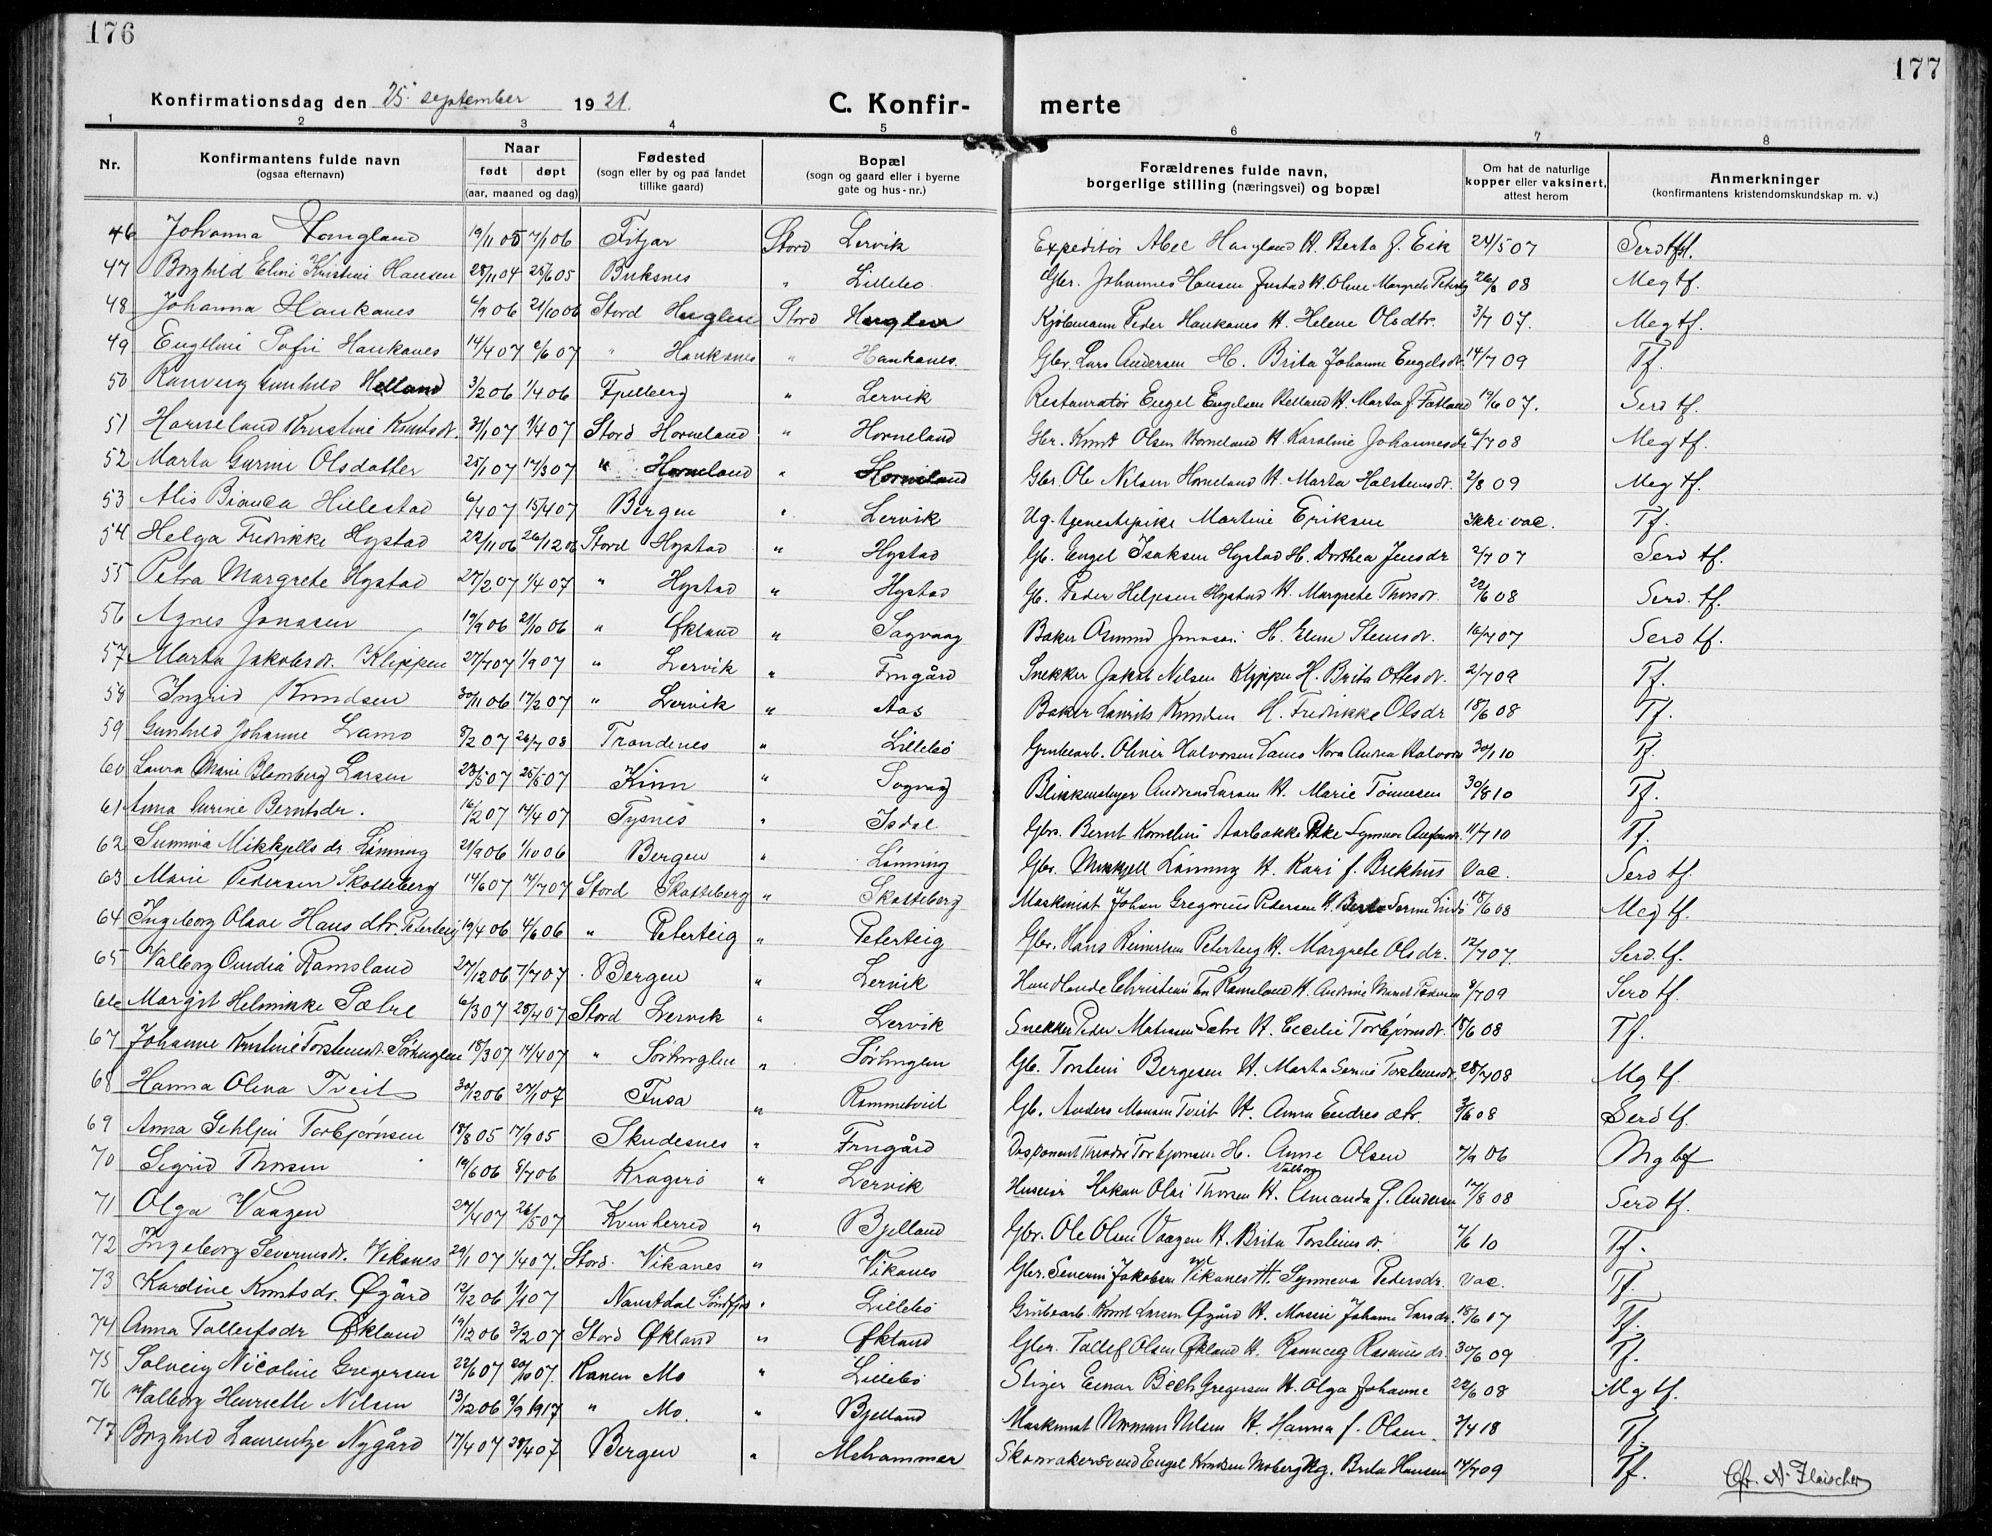 176
177
Konfirmationsdag den 25. september 1921.
C. Konfir-
merte
1 2 3 4 5 6 7 8
Nr.
Konfirmantens fulde navn
(ogsaa efternavn)
Naar
født døpt
(aar, maaned og dag)
Fødested
(sogn eller by og paa landet
tillike gaard)
Bopæl
(sogn og gaard eller i byerne
gate og hus-nr.)
Forældrenes fulde navn,
borgerlige stilling (næringsvei) og bopæl
Om hat de naturlige
kopper eller vaksinert,
attest herom
Anmerkninger
(konfirmantens kristendomskundskap m. v.)
46 Johanna 19/11 05 7/1 06 Fitjar Stord Lervik Expeditør Abel H. Berta f. Eik 24/5 07
47 Borghild Eline Kristine Hansen 28/11 04 25/6 05 Buksnes " Lillebø Gbr. Johannes Hansen H. Oline Margrete 26/6 08 Meg tf.
48 Johanna Haukanes 6/9 06 21/10 06 Stord Huglen Stord Huglen Kjøbmann Peder Haukanes H. Helene Olsdtr. 3/7 07. Meg tf.
49 Engeline Sofie Haukanes 14/4 07 2/6 07 " Haukanes " Haukanes. Gbr. Lars Andersen H. Brita Johanne Engelsdt. 14/7 09 Tf.
50 Ranveig Gunhild Helland 3/2 06 1/4 06 Fjelberg " Lervik Restauratør Engel Engelsen Helland H. Marta f. Tatland 19/6 07. Serd tf.
51 Horneland Kristine Knutsdt. 31/1 07 1/4 07 Stord Horneland " Horneland Gbr. Knut Olsen Horneland H. Karoline Johannesdt. 6/7 08 Meg tf.
52 Marta Gurine Olsdatter 25/1 07 17/3 07 " Horneland " Horneland Gbr. Ole Nilsen Horneland H. Marta Halsteinsdt. 2/8 09 Meg tf.
53 Alis Bianca Hillestad 6/4 07 15/4 07 Bergen " Lervik Ug. tjenestepike Martine Eriksen Ikke vac. Tf.
54 Helga Fredrikke Hystad 22/11 06 26/12 06 Stord Hystad " Hystad Gb. Engel Isaksen Hystad H. Dorthea Jensdr 2/7 07 Serd tf.
55 Petra Margrete Hystad 27/2 07 1/4 07 " Hystad " Hystad Gb. Peder Helgesen Hystad H. Margrete Thorsdt. 22/6 08 Serd. tf.
56 Agnes Jonasen 19/9 06 21/10 06 " Økland " Sagvaag Baker Asmund Jonasen H. Eline Steinsdt. 16/7 07 Serd tf.
57 Marta Jakobsdt. Klippen 27/7 07 1/9 07 " Lervik " Frugård Snekker Jakob Nilsen Klippen H. Brita Ottesdt. 2/7 09 Tf.
58 Ingrid Knudsen 30/11 06 17/2 07 " Lervik " Aas Baker Laurits Knudsen H. Fredrikke Olsdr 18/6 08 Tf.
59 Gunhild Johanne Lamo 8/2 07 26/7 08 Trondenes " Lillebø Grubearb. Oliver Halvorsen Lamo Nora Andrea 30/1 10 Tf.
60 Laura Marie Blomberg Larsen 23/5 07 25/5 07 Kinn " Sagvag Andreas Larsen H. Marie Tönnesen 30/8 10 Tf.
61 Anna Gurine Berntsdr. 16/2 07 14/4 07 Tysnes " Isdal Gbr. Bernt Kornelius 11/7 10 Tf.
62 Sunniva Mikkjellsdr. Lönning 21/9 06 1/10 06 Bergen " Lönning Gbr. Mikkjell Lönning H. Kari f. Brekhus Vac. Serd tf.
63 Marie Pedersen Skotteberg 14/6 07 14/7 07 Stord Skotteberg " Skotteberg Maskinist Johan Gregorius Pedersen H. Berta 18/6 08 Meg tf.
64 Ingeborg Olave Hansdtr. Peterteig 19/4 06 4/6 06 " Peterteig " Peterteig Gbr. Hans Reinertsen Peterteig H. Margrete Olsdr. 12/7 07. Serd. tf.
65 Valborg Ovidia Ramsland 27/12 06 7/7 07 Bergen " Lervik Handlende Christian Ramsland H. Andrine Pedersen 8/7 09 Serd tf.
66 Margit Helmikke Sætre 6/3 07 28/4 07 Stord Lervik " Lervik Snekker Peder Matisen Sætre H. Cecilie Torbjørnsdt. 18/6 08 Tf.
67 Johanne Kristine Torsteinsdt. Sørhuglen 18/3 07 14/4 07 " Sørhuglen " Sørhuglen Gb. Torstein Bergesen H. Marta Serine Torsteinsdt. 28/7 08 Mg tf.
68 Hanna Olena Tveit 30/12 06 27/1 07 Fusa " Rommetveit Gb. Anders Monsen Tveit H. Anna Endresdtr. 3/6 08 Serd tf.
69 Anna Torbjørnsen 18/8 05 17/9 05 Skudesnes " Frugård Disponent Theodor Torbjørnsen H. Anne Olsen 7/9 06 Mg
70 Sigrid Thorsen 19/6 06 8/7 06 Kragerø " Lervik Hakon Olai Thorsen H. Valborg Amanda f. Andersen 17/8 08 Serd tf.
71 Olga Vaagen 27/4 07 26/5 07 Kvinherred " Bjelland Gbr. Ole Olsen Vaagen H. Brita Torsteinsdt. 7/6 10 Tf.
72 Ingeborg Severinsdt. Vikanes 29/1 07 1/4 07. Stord. Vikanes " Vikanes Gbr. Severin Jakobsen Vikanes H. Synneva Pedersdr. Vac. Tf.
73 Kardine Knutsdr. Øgård 12/12 06 1/1 07 Naustdal Søndfjord " Lillebø Grubearb. Knut Larsen Øgård H. Mosine Johanne Larsdr. 18/6 17 Tf.
74 Anna Tollefsdr Økland 19/12 06 3/2 07 Stord Økland " Økland Gbr. Tollef Olsen Økland H. Ranneveg Rasmusdr. 30/6 09 Tf.
75 Solveig Nicoline Gregersen 22/6 07 20/10 07. Ranen Mo " Lillebø Stiger Einar Bech Gregersen H. Olga Johanne 22/6 08 Mg tf.
76 Valborg Henriette Nilsen 13/12 06 9/9 1917 " Mo. " Bjelland Maskinist Norman Nilsen H. Hanna f. Olsen. 3/4 18 Tf.
77 Borghild Laurentze Nygård 17/4 07 28/4 07 Bergen " Mehammer Skomakersvend Engel Knudsen Moberg Ug. Brita Hansen 14/7 09 Tf.
Chr. A. Fleischer